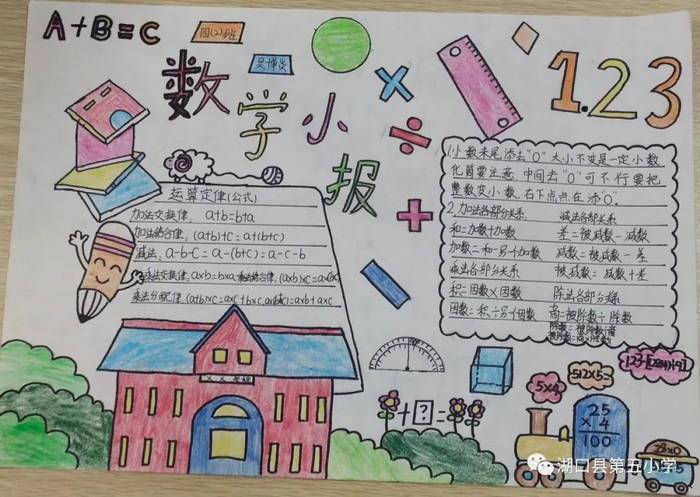 A+B=C
四(2)班
数学小报
1.23
运算定律(公式)
加法交换律, a+b=b+a
加法结合律, (a+b)+c=a+(b+c)
减法, a-b-c=a-(b+c)=a-c-b
乘法交换律, a×b=b×a, 乘法结合律, (a×b)×c=a×(b×c)
乘法分配律, (a+b)×c=a×c+b×c
=a×b+a×c
1.小数末尾添去"0"大小不变是一定小数
化简要注意 中间去"0"可不行要把
整数变小数,右下点点在添"0".
2.加法各部分关系 减法各部关系
和=加数+加数 差=被减数-减数
加数=和-另一个加数 减数=被减数-差
乘法各部分关系 被减数=减数+差
积=因数×因数 除法各部分关系
因数=积÷另一个因数 商=被除数÷除数
除数=被除数÷商
被除数=商×除数
小学
+?=
5×4
512×5=
25
×4
100
湖口县第五小学